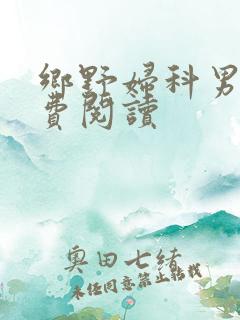 鄉野婦科男
費閱讀
奧田七緒
未經同意禁止轉載